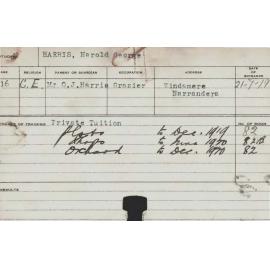 HARRIS, Harold George
RELIGION PARENT OR GUARDIAN OCCUPATION ADDRESS DATE OF ENTRANCE
16 C.E. Mr O.J.Harris Grazier Windamere 21-7-19
Narrandera
OF TRAINING Private Tuition
to Dec. 1919 82
Shops to June 1920 82B
Orchard to Dec. 1920 82